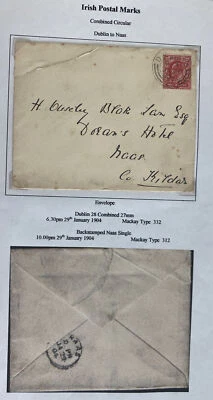 Irish Postal Marks
Combined Circular
Dublin to Naas
Doran's Hotel
Naas
Co. Kildare
Envelope
Dublin 28 Combined 27mm
6.30pm 29th January 1904 Mackay Type 332
Backstamped Naas Single
10.00pm 29th January 1904 Mackay Type 312
NAAS